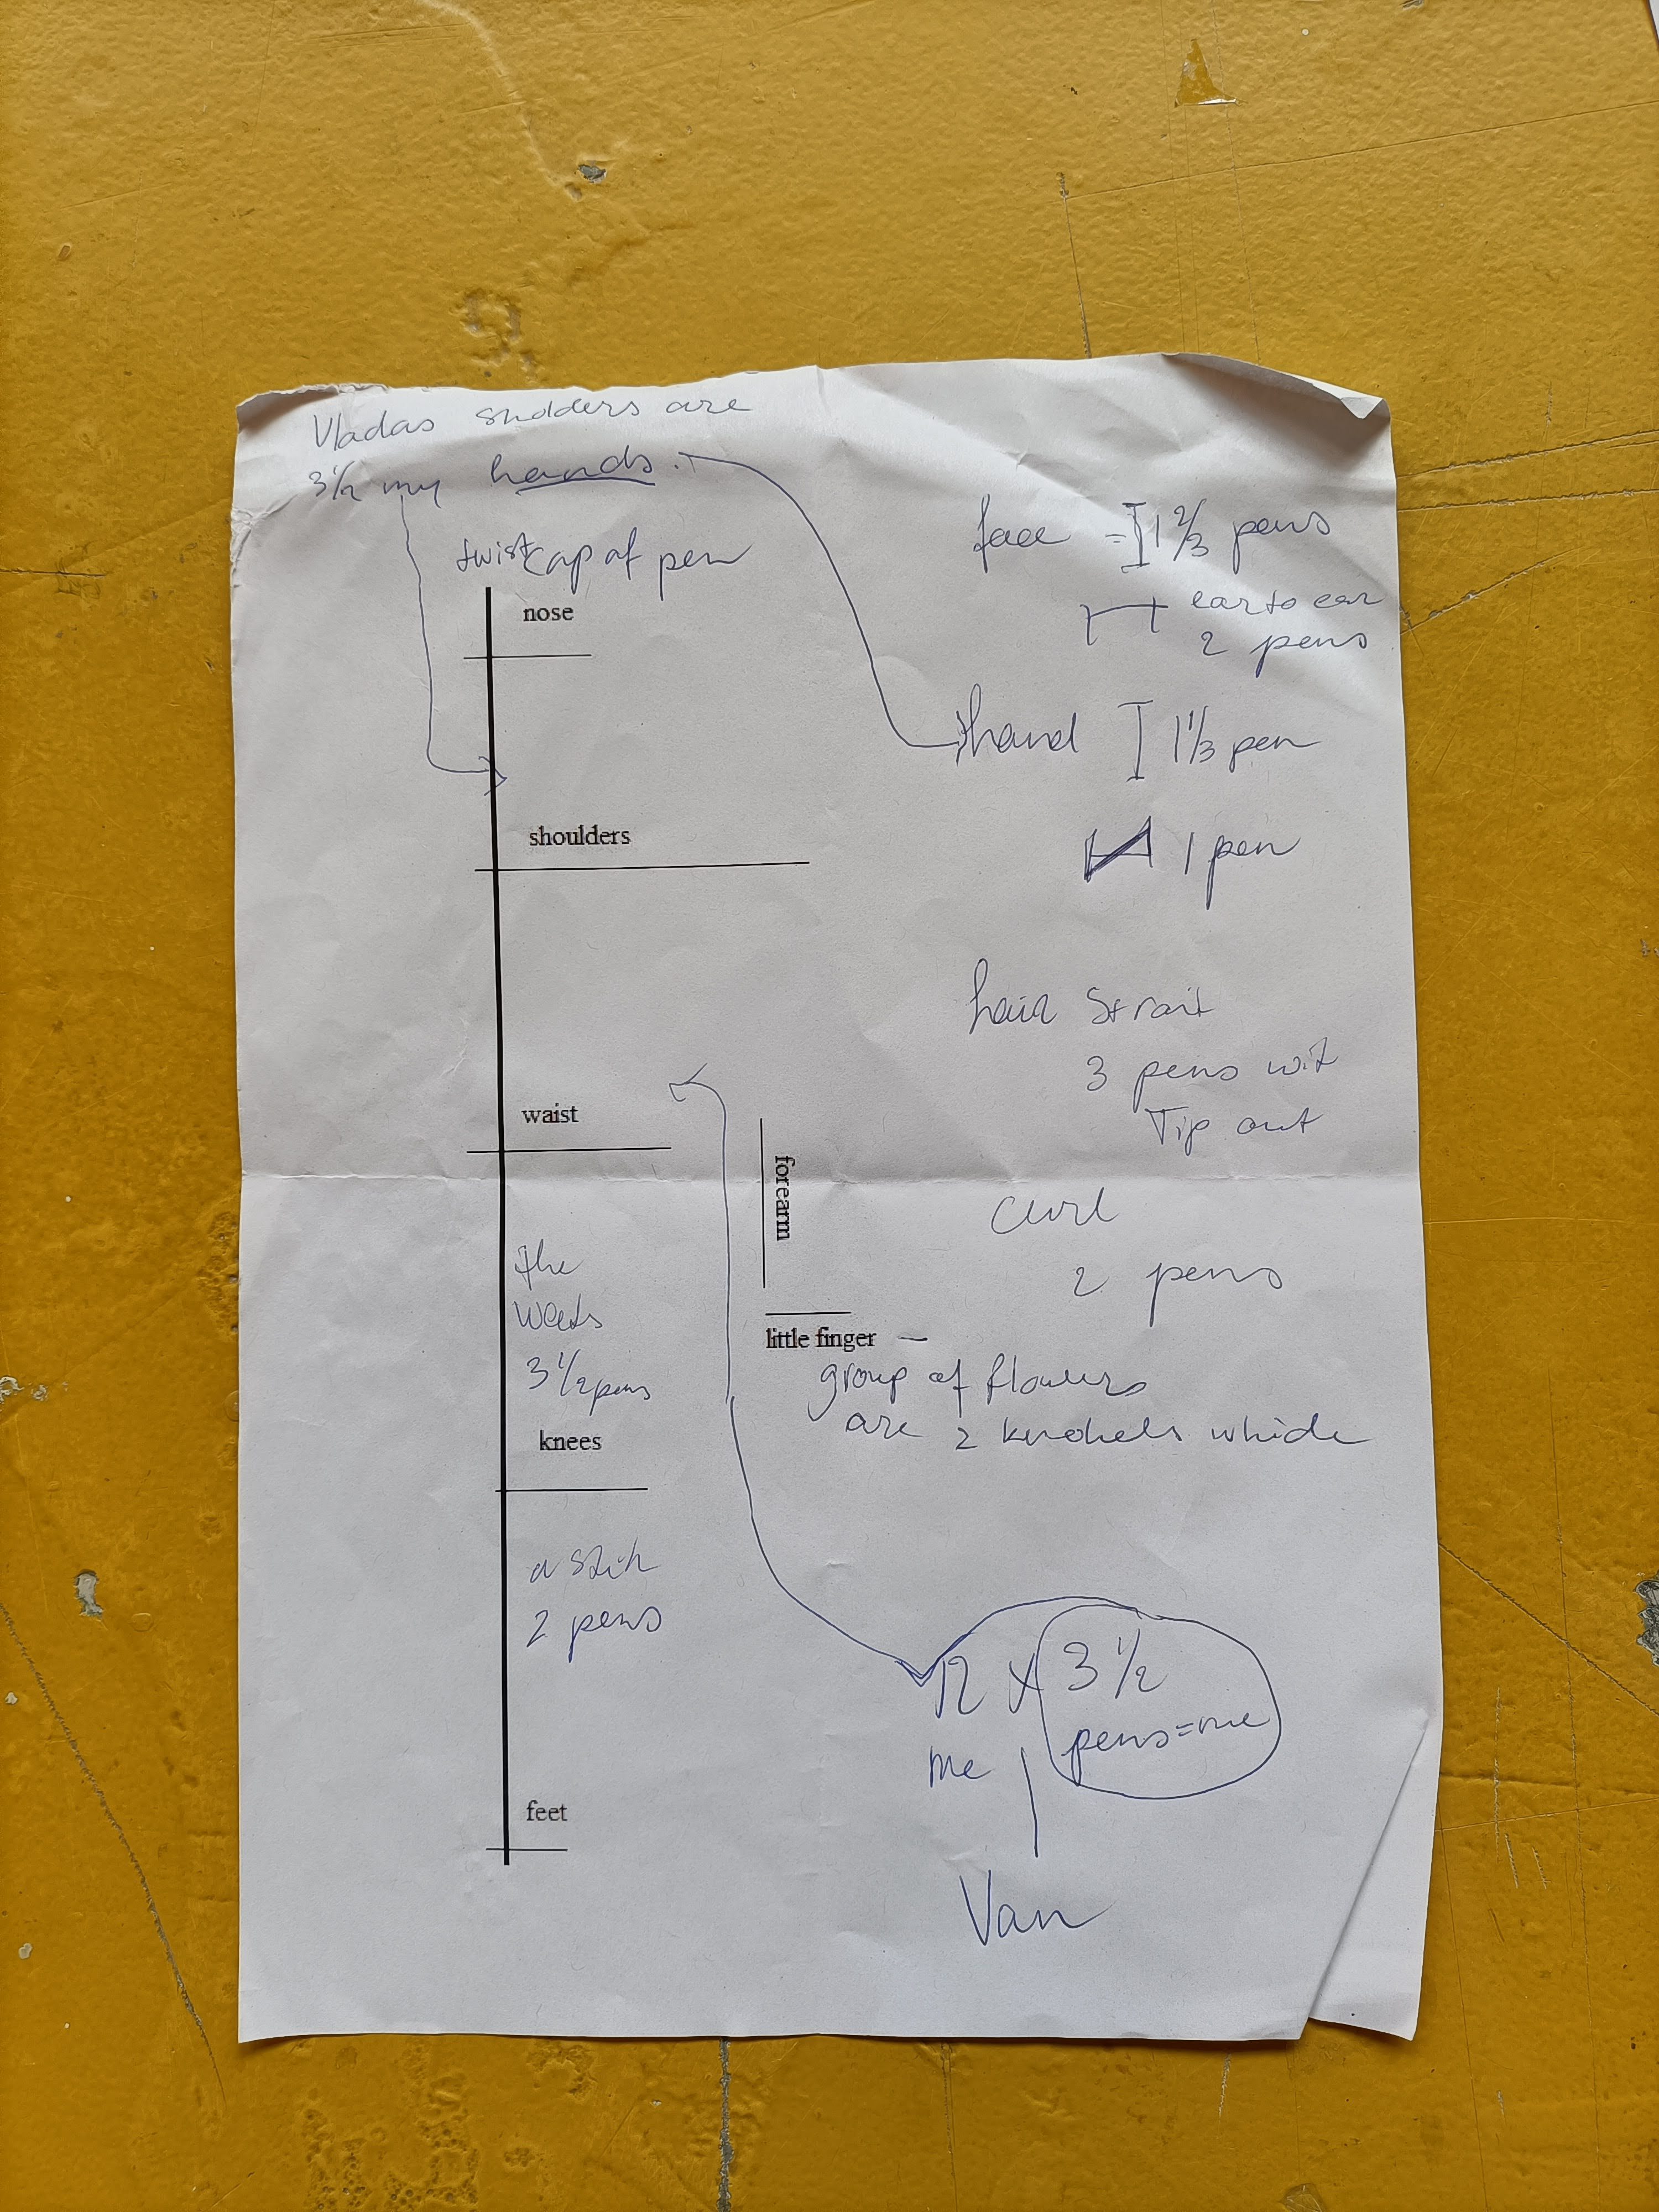 Vladas sholders are
3 1/2 my hands.
twist cap of pen
nose
shoulders
waist
the
weeds
3 1/2 pens
knees
a stik
2 pens
feet
forearm
little finger –
group of flowers
are 2 knokels whide
face = 1 2/3 pens
ear to ear
2 pens
hand 1 1/3 pen
1 pen
hair Strait
3 pens wit
Tip out
Curl
2 pens
12 x 3 1/2
pens = me
me
Van